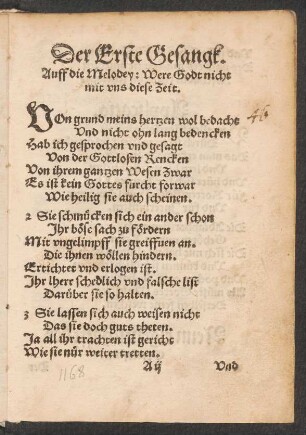 Der Erste Gesangk.
Auff die Melodey: Were Godt nicht
mit vns diese Zeit.
VOn grund meins hertzen wol bedacht
Vnd nicht ohn lang bedencken
Hab ich gesprochen vnd gesagt
Von der Gottlosen Rencken
Von ihrem gantzen Wesen zwar
Es ist kein Gottes furcht forwar
Wie heilig sie auch scheinen.
2 Sie schmücken sich ein ander schon
Ihr böse sach zu fördern
Mit vngelimpff sie greiffuen an.
Die ihnen wöllen hindern.
Ertichtet vnd erlogen ist.
Ihr lhere schedlich vnd falsche list
Darüber sie so halten.
3 Sie lassen sich auch weisen nicht
Das sie doch guts theten.
Ja all ihr trachten ist gericht
Wie sie nür weiter tretten.
Aij Vnd
46
1168